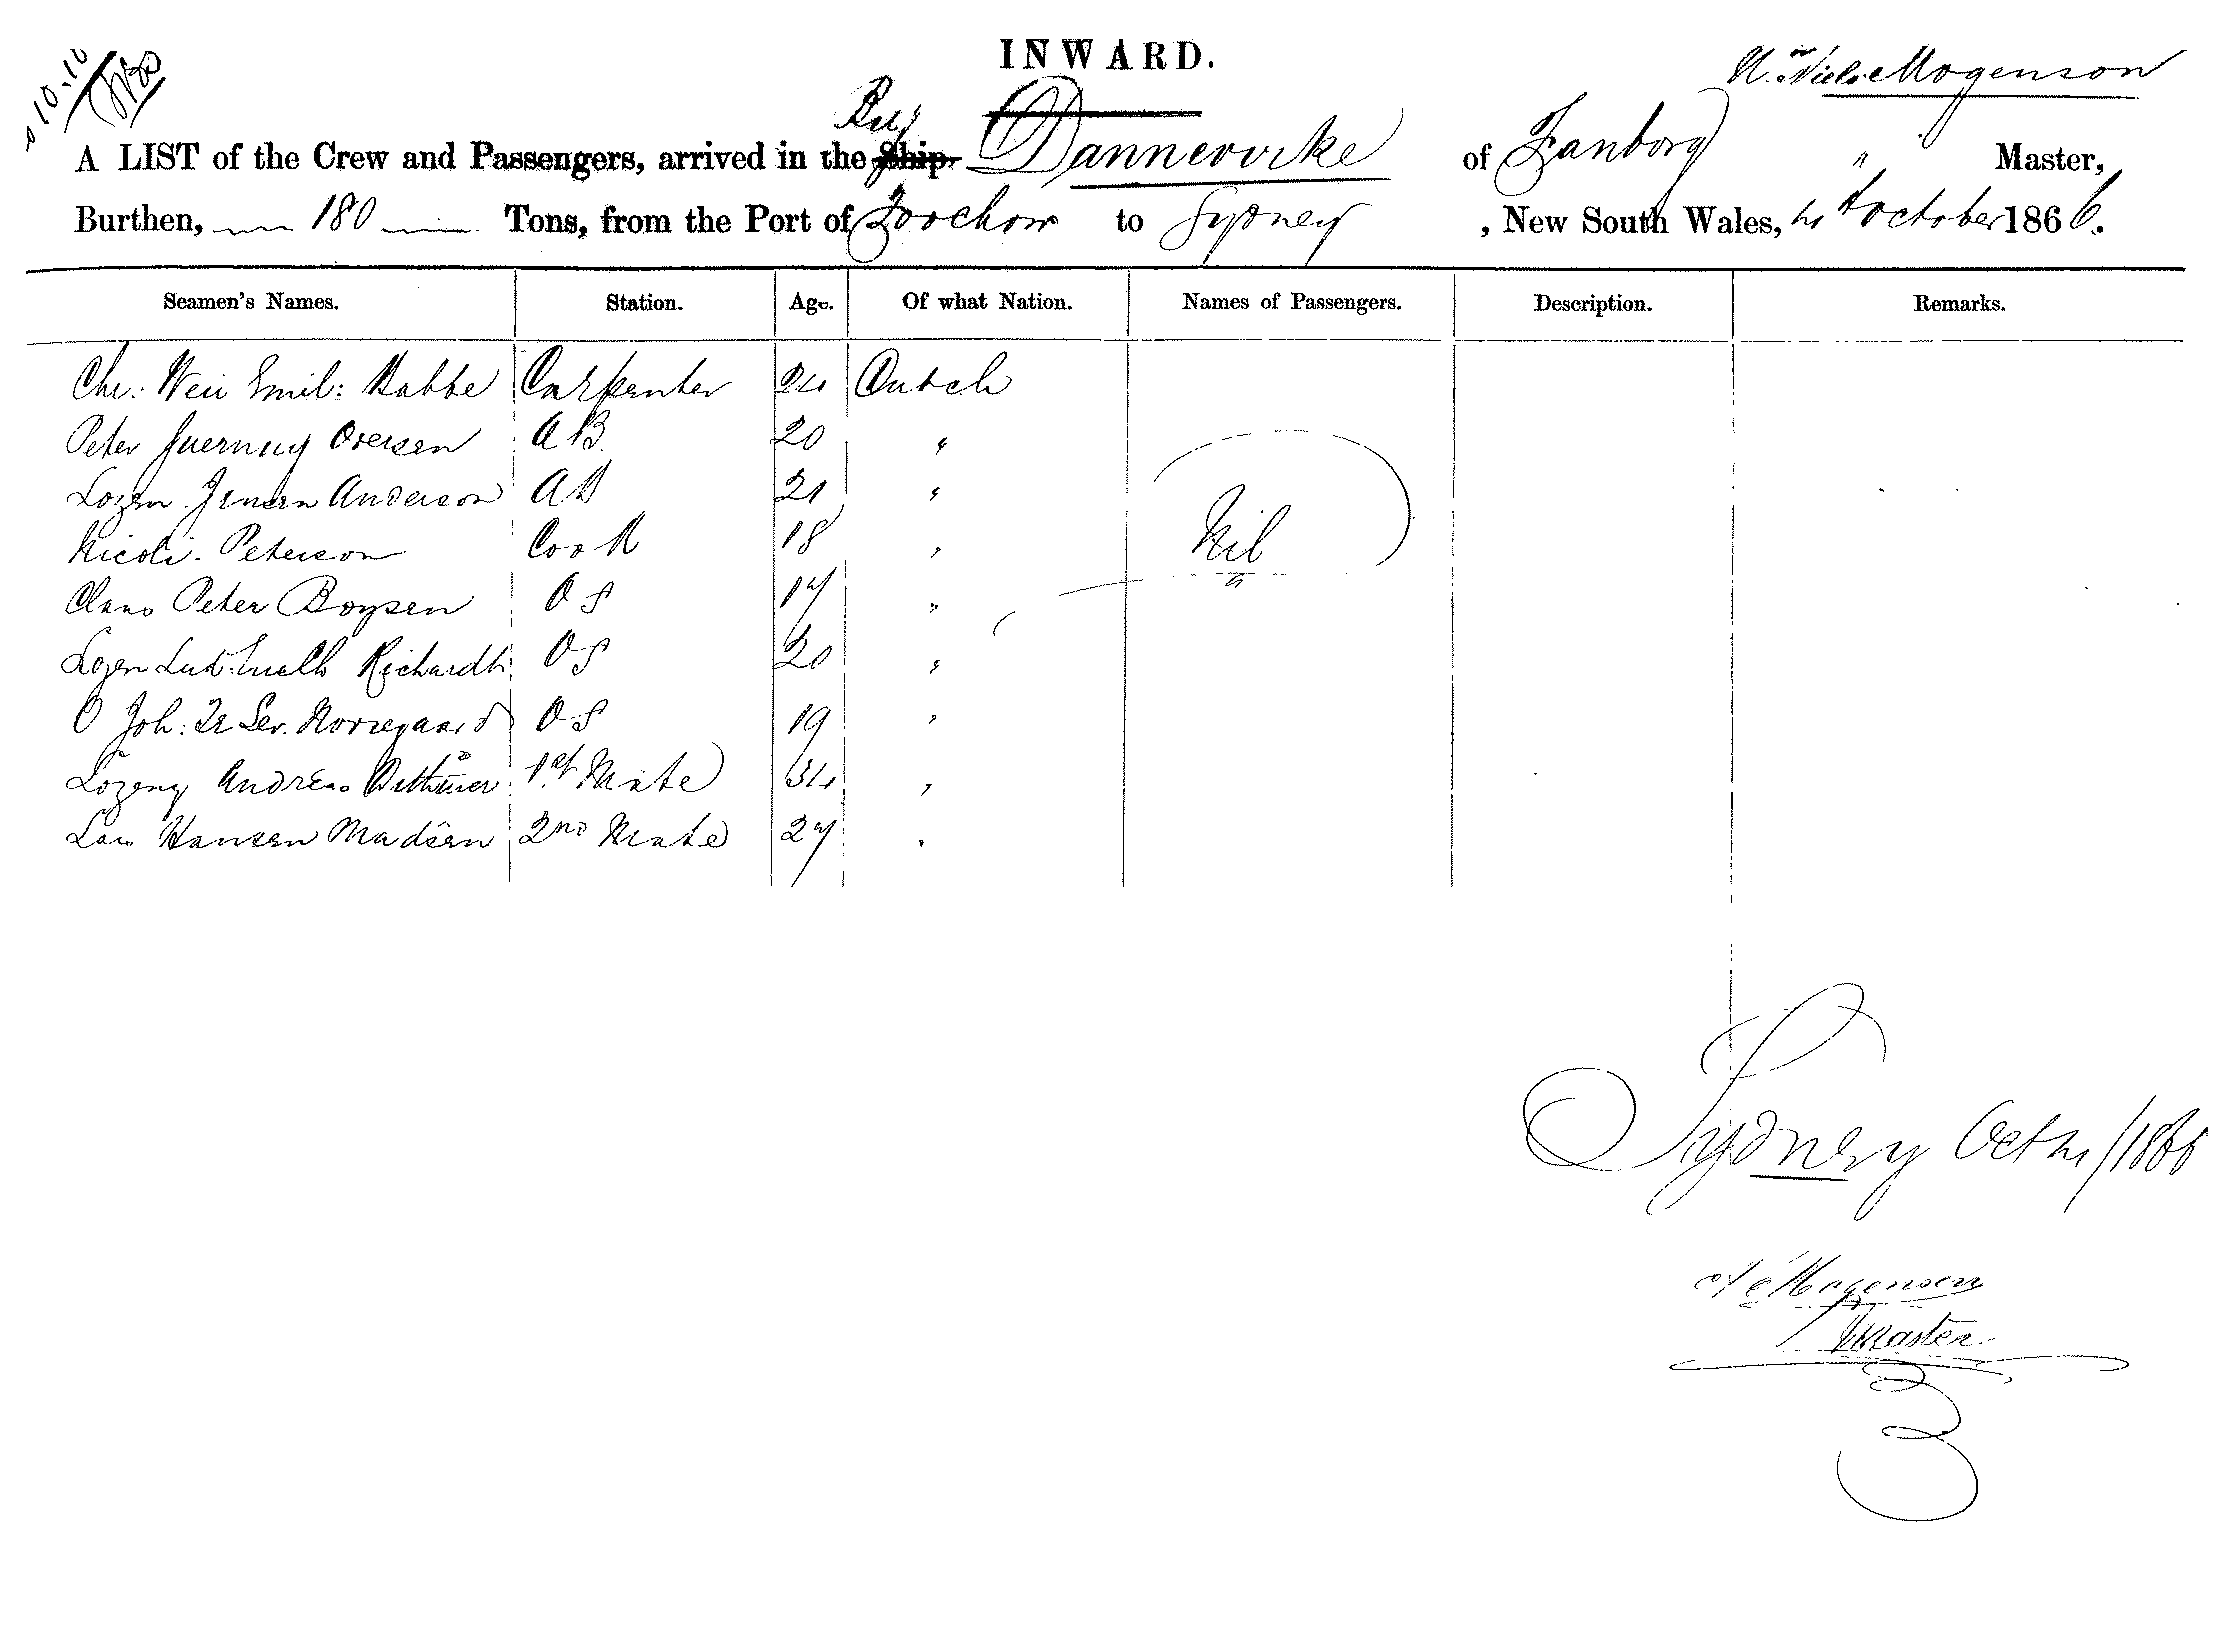 INWARD.
N. Niels Mogenson
10.10
Brig
A LIST of the Crew and Passengers, arrived in the Ship Dannevirke of Fanborg " Master,
Burthen, 180 Tons, from the Port of Foochow to Sydney, New South Wales, October 1866.
Seamen's Names. Station. Age. Of what Nation. Names of Passengers. Description. Remarks.
Chr: Emil: Carpenter 24 Dutch
Peter Oversen AB. 20 "
Lozen Jensen Anderson AB 21 "
Nicoli Peterson Cook 18 "
Claus Peter Boysen OS 17 "
Lozen Richardt OS 20 "
Joh: Norregaard OS 19 "
Lozeny Andreas 1st Mate 34 "
Hansen Madsen 2nd Mate 27 "
Nil
Sydney Oct 4/1866
N Mogensen
Master